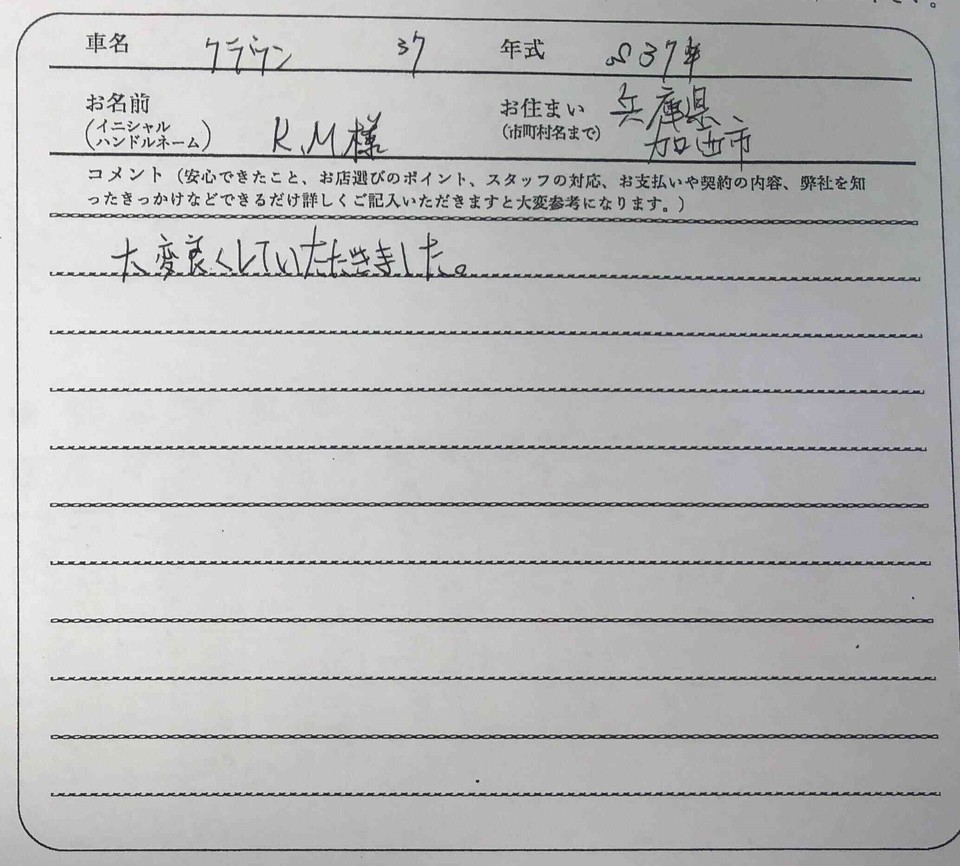 車名 クラウン 37 年式 S37年
お名前 お住まい 兵庫県
(イニシャル ハンドルネーム) K.M様 (市町村名まで) 加西市
コメント（安心できたこと、お店選びのポイント、スタッフの対応、お支払いや契約の内容、弊社を知
ったきっかけなどできるだけ詳しくご記入いただきますと大変参考になります。）
大変良くしていただきました。